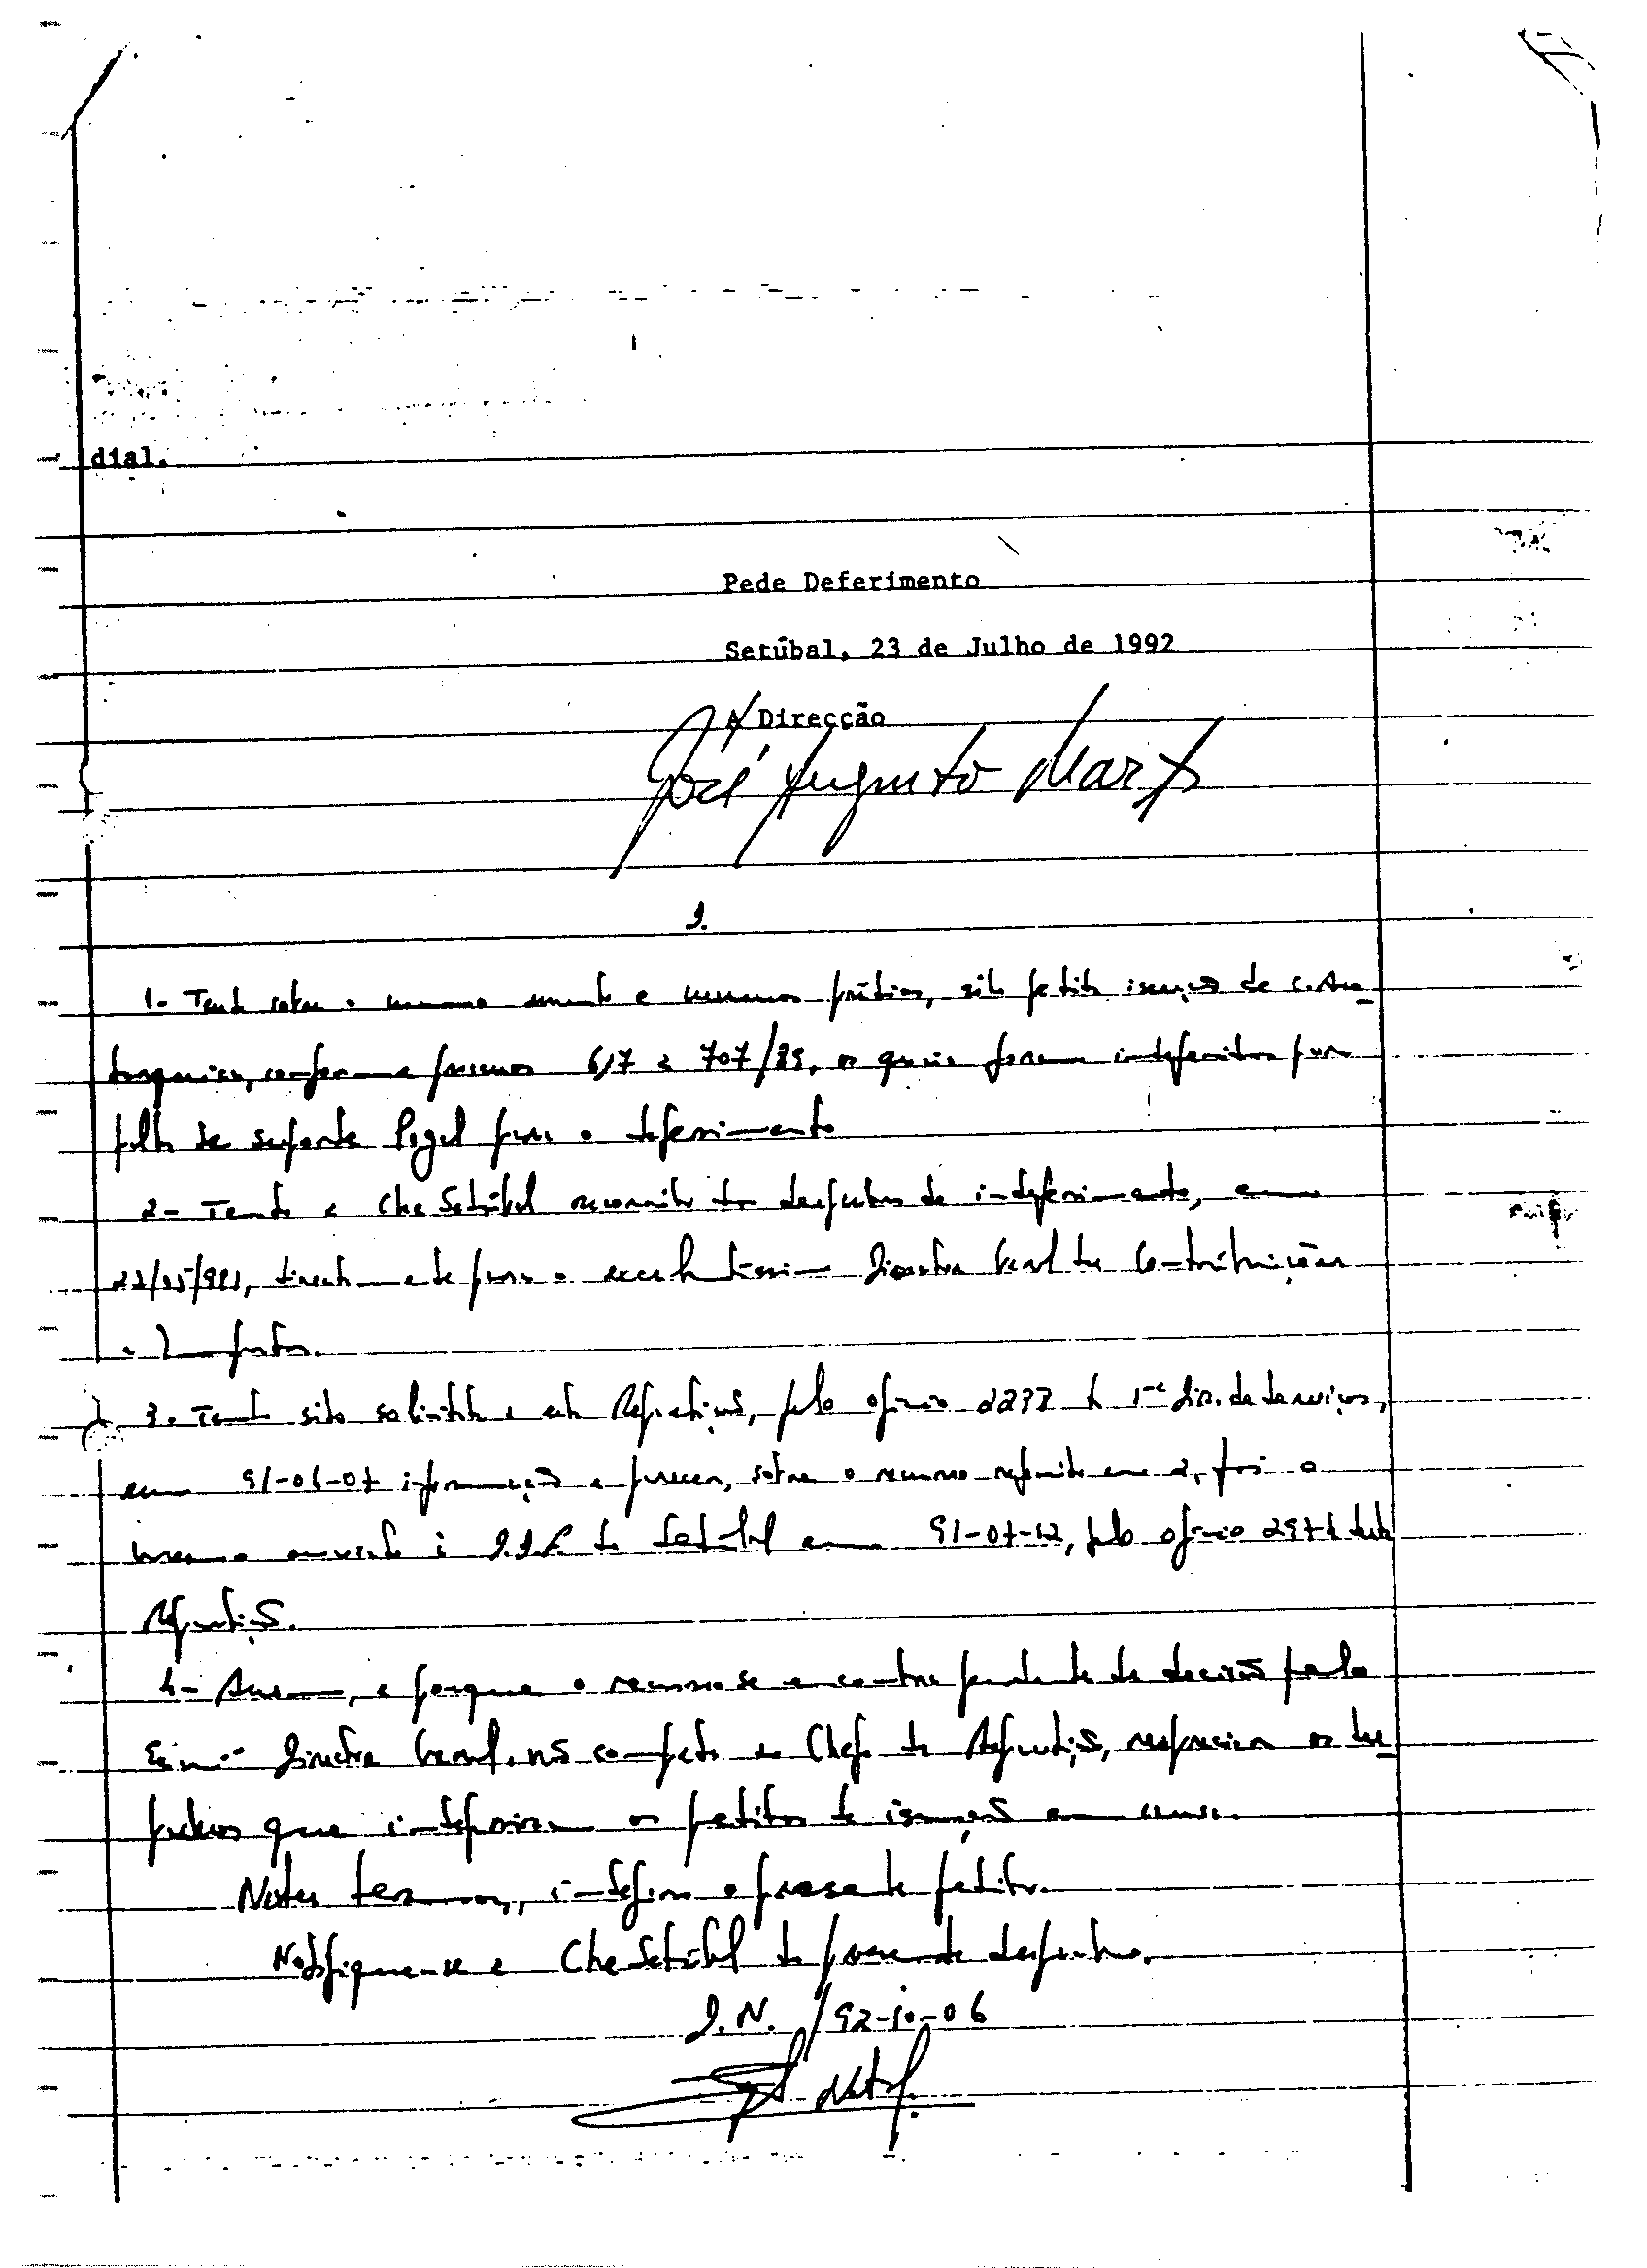 dial.
Pede Deferimento
Setúbal, 23 de Julho de 1992
A Direcção
José Augusto Mar
1- Tendo sobre o mesmo e mesmos prédios, sido pedida isenção de C. Au-
tarquica, conforme processos 617 e 707/89, os quais foram indeferidos por
falta de suporte legal para o deferimento
2- Tendo a Che Setúbal recorrido dos despachos de indeferimento, em
directamente para o excelentissimo Director Geral das Contribuições
e Impostos.
3. Tendo sido solicitado a esta Repartição, pelo oficio da 1ª Dir. de Serviços,
em 91-06-07 informação e parecer, sobre o recurso referido em 2, foi o
mesmo enviado à D.D.F. de Setúbal em 91-07-12, pelo oficio desta
Repartição.
4- Assim, e porque o recurso se encontra pendente de decisão pelo
Director Geral, não compete ao Chefe de Repartição, reapreciar os des-
pachos que indeferiram os pedidos de isenção em causa.
Nestes termos, indefiro o presente pedido.
Notifique-se a Che Setúbal do presente despacho.
92-10-06